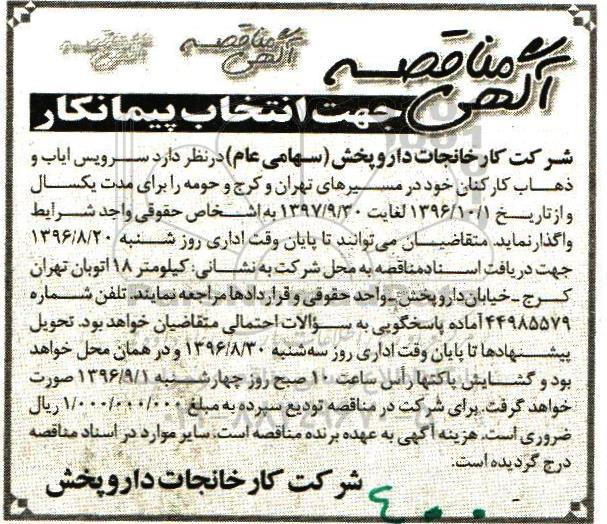 آگهی مناقصه
جهت انتخاب پیمانکار
شرکت کارخانجات داروپخش (سهامی عام) درنظر دارد سرویس ایاب و
ذهاب کارکنان خود در مسیرهای تهران و کرج و حومه را برای مدت یکسال
و از تاریخ ۱۳۹۶/۱۰/۱ لغایت ۱۳۹۷/۹/۳۰ به اشخاص حقوقی واجد شرایط
واگذار نماید. متقاضیان می‌توانند تا پایان وقت اداری روز شنبه ۱۳۹۶/۸/۲۰
جهت دریافت اسناد مناقصه به محل شرکت به نشانی: کیلومتر ۱۸ اتوبان تهران
کرج ـ خیابان داروپخش ـ واحد حقوقی و قراردادها مراجعه نمایند. تلفن شماره
۴۴۹۸۵۵۷۹ آماده پاسخگویی به سؤالات احتمالی متقاضیان خواهد بود. تحویل
پیشنهادها تا پایان وقت اداری روز سه‌شنبه ۱۳۹۶/۸/۳۰ و در همان محل خواهد
بود و گشایش پاکتها رأس ساعت ۱۰ صبح روز چهارشنبه ۱۳۹۶/۹/۱ صورت
خواهد گرفت. برای شرکت در مناقصه تودیع سپرده به مبلغ ۱/۰۰۰/۰۰۰/۰۰۰ ریال
ضروری است. هزینه آگهی به عهده برنده مناقصه است، سایر موارد در اسناد مناقصه
درج گردیده است.
شرکت کارخانجات داروپخش